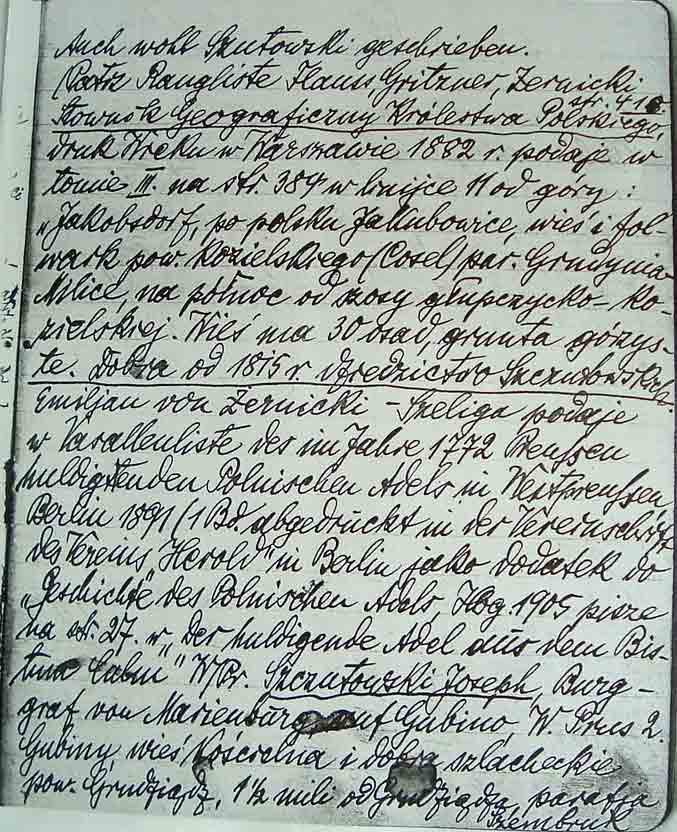 Auch wohl Szutowski geschrieben.
(Patrz Rangliste Hans Gritzner, Żernicki
str. 415.
Słownik Geograficzny Królestwa Polskiego,
druk Wieku w Warszawie 1882 r. podaje w
tomie III. na str. 384 w linijce 11 od gory:
„Jakobsdorf, po polsku Jakubowice, wieś i fol-
wark pow. Kozielskiego (Cosel) par. Grudynia-
Milice, na północ od szosy głupczycko-ko-
zielskiej. Wieś ma 30 osad, grunta górzys-
te. Dobra od 1815 r. dziedzictwo Szczutowskich.
Emiljan von Żernicki-Szeliga podaje
w Vasallenliste des im Jahre 1772 Preußen
huldigtenden Polnischen Adels in Westpreußen,
Berlin 1891 (1 Bd. abgedruckt in der Vereinschrift
des Vereins „Herold" in Berlin jako dodatek do
„Geschichte des Polnischen Adels Hbg. 1905 pisze
na str. 27. w „Der huldigende Adel aus dem Bis-
tum Culm" W/Pr. Szczutowski Joseph, Burg-
graf von Marienburg auf Gubino, W. Prus 2.
Gubiny, wieś kościelna i dobra szlacheckie
pow. Grudziądz, 1½ mili od Grudziądza, parafja
Szembruk